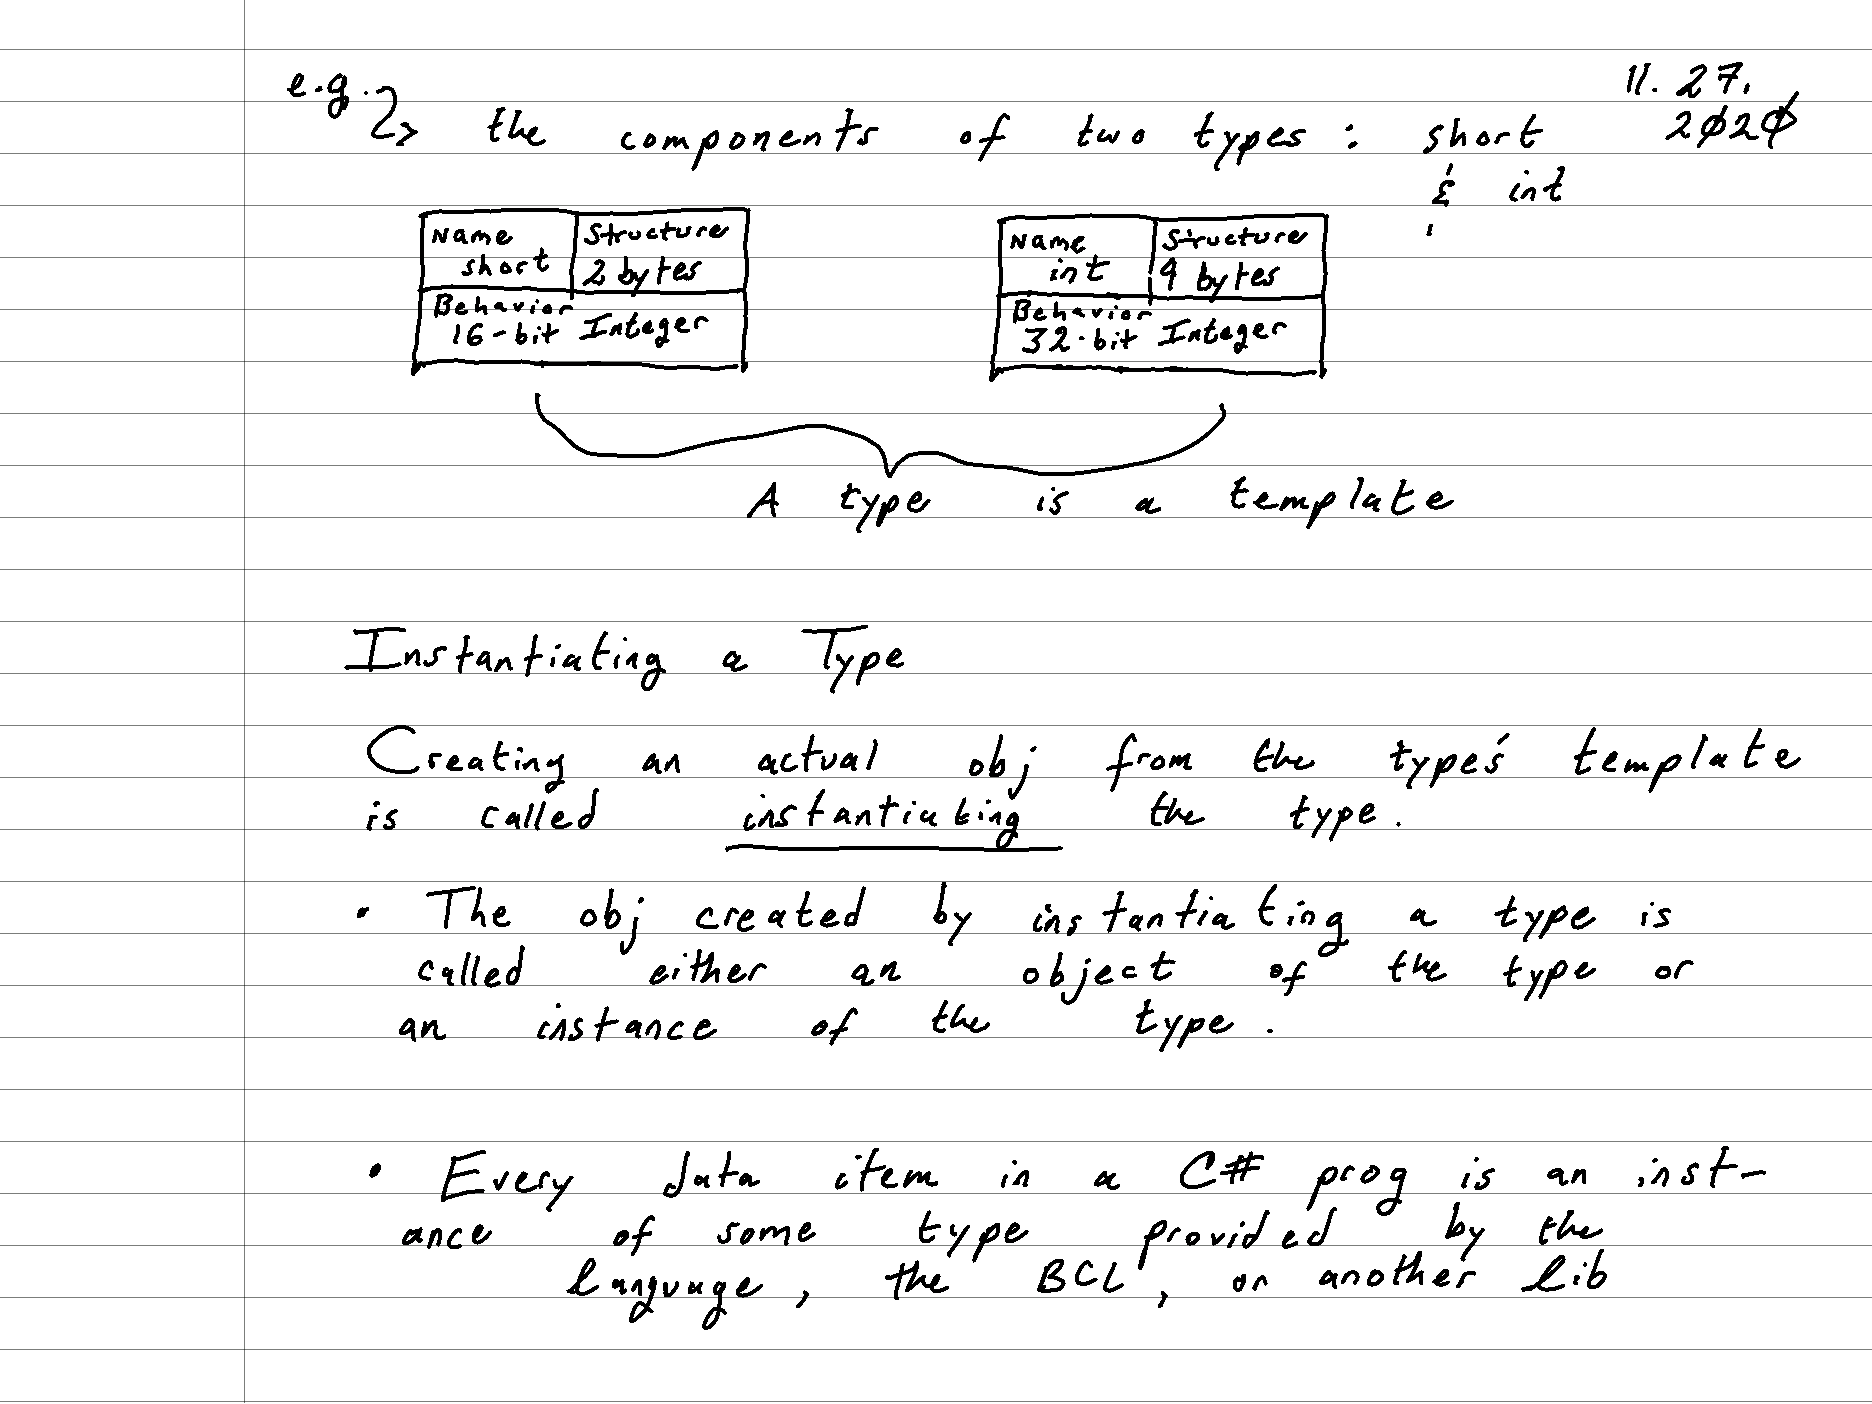 e.g.
11. 27.
2020
the components of two types : short
& int
Name
short
Structure
2 bytes
Behavior
16-bit Integer
Name
int
Structure
4 bytes
Behavior
32-bit Integer
A type is a template
Instantiating a Type
Creating an actual obj from the type's template
is called instantiating the type.
• The obj created by instantiating a type is
called either an object of the type or
an instance of the type.
• Every data item in a C# prog is an inst-
ance of some type provided by the
language, the BCL, or another lib